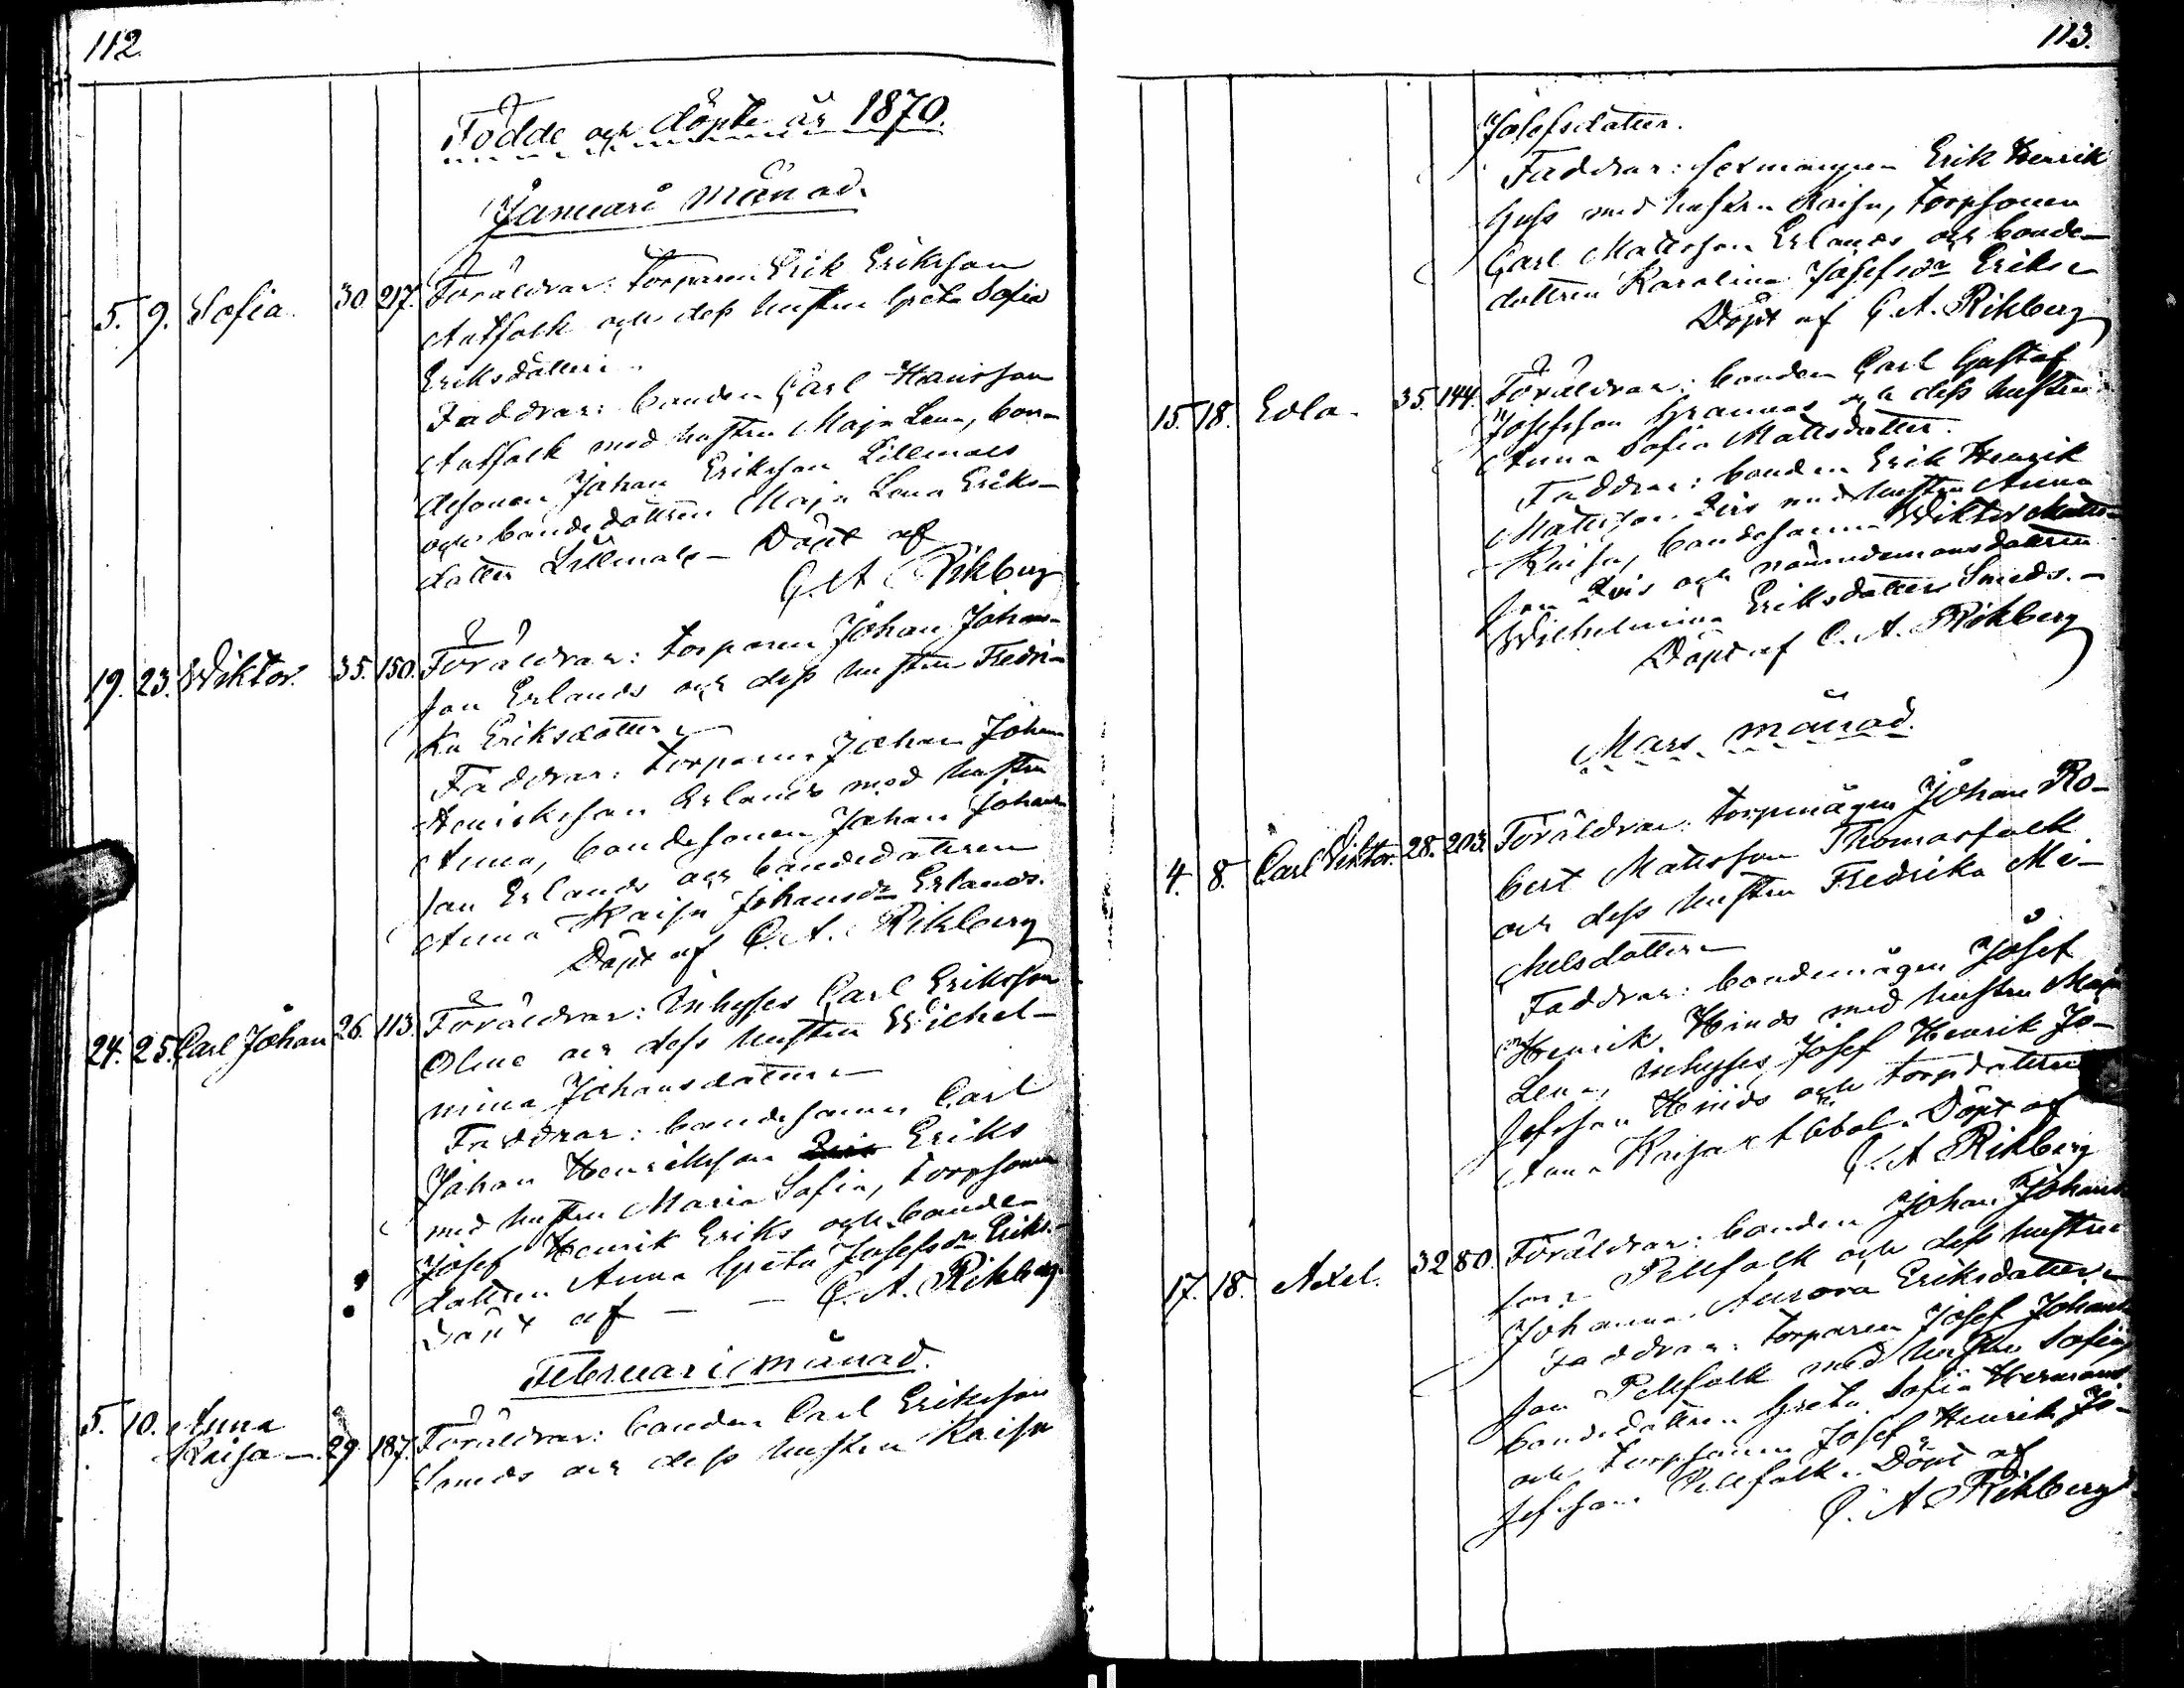 112.
Födde och döpte år 1870.
Januari månad.
5. 9. Sofia. 30 217. Föräldrar: torparen Erik Eriksson
Antfolk och dess hustru Greta Sofia
Eriksdotter.
Faddrar: bonden Carl Hansson
Antfolk med hustru Maja Lena, bon-
desonen Johan Eriksson Lillmals
och bondedottren Maja Lena Eriks-
dotter Lillmals – Döpt af
C. A. Rikberg
19. 23. Wiktor. 35. 150. Föräldrar: torparen Johan Johans-
son Erlands och dess hustru Fredri-
ka Eriksdotter.
Faddrar: torparen Johan Johan
Henriksson Erlands med hustru
Anna, bondesonen Johan Johans-
son Erlands och bondedottren
Anna Kaisa Johansdr Erlands.
Döpt af C. A. Rikberg
24. 25. Carl Johan 26. 113. Föräldrar: Inhyses Carl Eriksson
Olme och dess hustru Wilhel-
mina Johansdotter
Faddrar: bondesonen Carl
Johan Henriksson Eriks
med hustru Maria Sofia, torpsonen
Josef Henrik Eriks och bonde-
dottren Anna Greta Josefsdr Eriks.
Döpt af – – C. A. Rikberg.
Februari månad.
5. 10. Anna
Kaisa – 29. 187. Föräldrar: bonden Carl Eriksson
Smeds och dess hustru Kaisa
113.
Josefsdotter.
Faddrar: sexmannen Erik Henrik
med hustru Kaisa, torpsonen
Carl Mattsson Erlands och bonde-
dottren Karolina Josefsdr Eriks –
Döpt af C. A. Rikberg
15. 18. Edla. 35. 144. Föräldrar: bonden Carl Gustaf
Josefsson Grannas och dess hustru
Anna Sofia Mattsdotter.
Faddrar: bonden Erik Henrik
Mattsson med hustru Anna
Kaisa, bondesonen Wiktor Matts-
son och nämndemansdottren
Wilhelmina Eriksdotter Smeds. –
Döpt af C. A. Rikberg
Mars månad.
4. 8. Carl Viktor. 28. 203. Föräldrar: torpmågen Johan Ro-
bert Mattsson Thomasfolk
och dess hustru Fredrika Mi-
chelsdotter –
Faddrar: bondemågen Josef
Henrik Hinds med hustru Maja
Lena, inhyses Josef Henrik Jo-
sefsson Hinds och torpdottren
Anna Kaisa Åbbal. Döpt af
C. A. Rikberg
17. 18. Axel. 32 80. Föräldrar: bonden Johan Johans-
son Pellfolk och dess hustru
Johanna Aurora Eriksdotter –
Faddrar: torparen Josef Johans-
son Pellfolk med hustru Sofia,
bondedottren Greta Sofia Hermans
och torpsonen Josef Henrik Jo-
sefsson Pellfolk. Döpt af
C. A. Rikberg